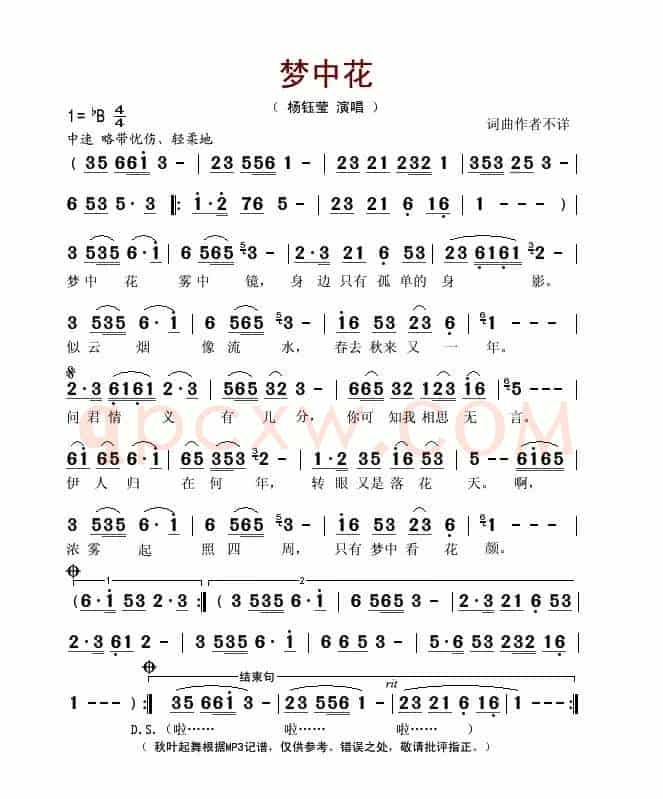 梦中花
（ 杨钰莹 演唱 ）
1= ♭B 4/4
词曲作者不详
中速 略带忧伤、轻柔地
( 35 661 3 - | 23 556 1 - | 23 21 232 1 | 353 253 5 -
6 53 5· 3 |: 1·2 76 5 - | 23 21 6 16 | 1 - - - ) |
3 535 6·1 | 6 565 3 - | 2·3 21 6 53 | 23 6161 2 - |
梦 中 花 雾 中 镜， 身 边 只有 孤 单的 身 影。
3 535 6·1 | 6 565 3 - | 16 53 23 6 | 1 - - - |
似 云 烟 像 流 水， 春去 秋来 又 一 年。
2·3 6161 2·3 | 565 32 3 - | 665 32 123 16 | 5 - - - |
问 君 情 义 有 几 分， 你可 知我 相思 无 言。
61 65 6·1 | 65 353 2 - | 1·2 35 16 53 | 5 - - 6165 |
伊 人 归 在 何 年， 转 眼 又是 落 花 天。 啊，
3 535 6·1 | 6 565 3 - | 16 53 23 6 | 1 - - - |
浓 雾 起 照 四 周， 只有 梦中 看 花 颜。
1 2
(6·1 53 2·3 :| (3 535 6·1 | 6 565 3 - | 556 21 6 - |
2·3 61 2 - | 3 535 6·1 | 6 6 5 3 - | 6· 5 53 232 16 |
结束句
rit
1 - - - ) :| 35 661 3 - | 23 556 1 - | 23 21 6 16 | 1 - - - :|
D.S.（啦…… 啦…… 啦…… ）
（ 秋叶起舞根据MP3记谱，仅供参考。错误之处，敬请批评指正。）
qpcxw.COM